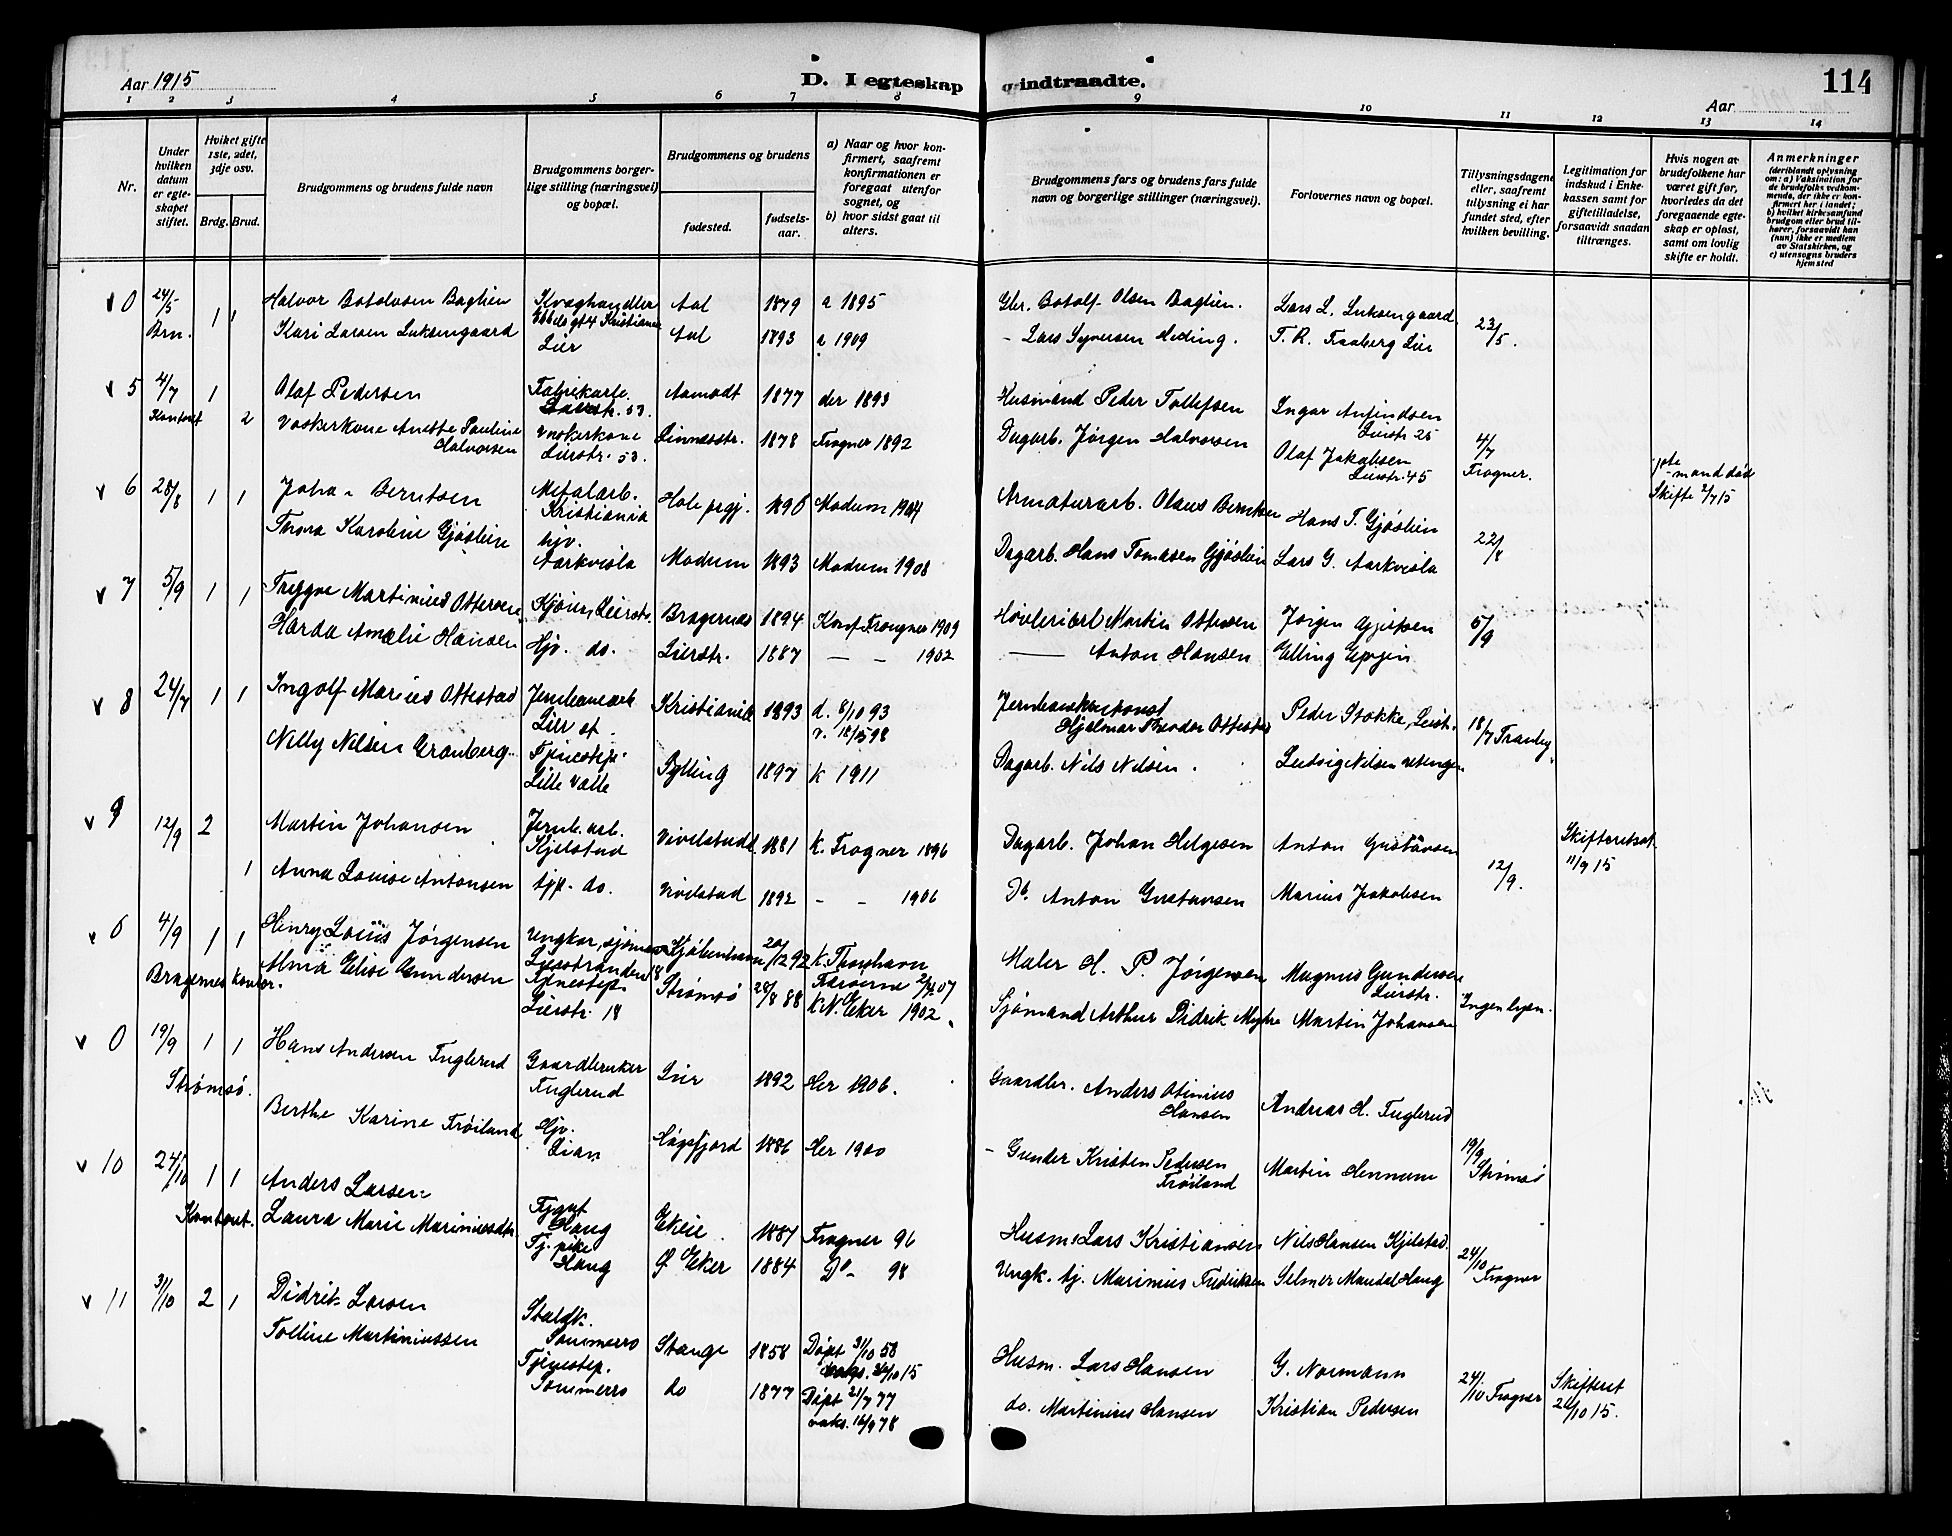 Aar 1915
D. I egteskap indtraadte.
114
Aar
1 2 3 4 5 6 7 8 9 10 11 12 13 14
Nr.
Under hvilken datum er egteskapet stiftet.
Hviket gifte 1ste, 2det, 3dje osv.
Brdg. Brud.
Brudgommens og brudens fulde navn
Brudgommens borgerlige stilling (næringsvei) og bopæl.
Brudgommens og brudens
fødested.
fødselsaar.
a) Naar og hvor konfirmert, saafremt konfirmationen er foregaat utenfor sognet, og
b) hvor sidst gaat til alters.
Brudgommens fars og brudens fars fulde navn og borgerlige stillinger (næringsvei).
Forlovernes navn og bopæl.
Tillysningsdagene eller, saafremt tillysning ei har fundet sted, efter hvilken bevilling.
Legitimation for indskud i Enkekassen samt for giftetilladelse, forsaavidt saadan tiltrænges.
Hvis nogen av brudefolkene har været gift før, hvorledes da det foregaaende egteskap er opløst, samt om lovlig skifte er holdt.
Anmerkninger (deriblandt oplysning om: a) Vaksination for de brudefolks vedkommende, der ikke er konfirmert her i landet; b) hvilket kirkesamfund brudgom eller brud tilhører, forsaavidt han (hun) ikke er medlem av Statskirken, og c) utensogns bruders hjemsted
v 0 24/5 1 1 Halvor Botolvsen Baglien Kvæghandler Aal 1879 a 1895 Gbr. Botolf Olsen Baglien. Lars L. Luksengaard 23/5.
Brn. Kari Larsen Luksengaard Lier Aal 1893 a 1909 - Lars Syversen Meding. T. R. Faaberg Lier
v 5 4/7 1 Olaf Pedersen Fabrikarb. Lierstr. 53. Aamodt 1877 der 1893 Husmand Peder Tollefsen Ingar Anfindsen Lierstr 25
Kontoret 2 Vaskerkone Anette Pauline Halvorsen Vaskerkone Lierstr. 53. Linnesstr. 1878 Frogner 1892 Dagarb. Jørgen Halvorsen Olaf Jakobsen Lierstr. 45 4/7 Frogner. mand død Skifte 2/7 15
v 6 28/8 1 1 Johan Berntsen Metalarb. Kristiania Hole prgj. 1890 Modum 1904 Armaturarb. Olaus Berntsen Hans T. Gjøslien 22/8
Thora Karoline Gjøslien hjv. Aarkvisla Modum 1893 Modum 1908 Dagarb. Hans Tomasen Gjøslien Lars G. Aarkvisla
v 7 5/9 1 1 Trygve Martinius Ottersen Kjører, Lierstr. Bragernes 1894 Konf. Frogner 1909 Høvleriarb. Martin Ottersen Jørgen Gjestsen 5/9
Harda Amalie Hansen Hjv. do. Lierstr. 1887 — - 1902 — Anton Hansen Elling Egsjin
v 8 24/7 1 1 Ingolf Marius Ottestad Jernbanearb Lier st. Kristiania 1893 d. 8/10 93 v. 18/5 98 Hjalmar Teodor Ottestad Peder Stokke, Lierst. 18/7 Tranby
Nelly Nilsen Gronberg. Tjenestep. Lille Valle Sylling 1897 k 1911 Dagarb. Nils Nilsen. Ludvig Nilsen
v 9 12/9 2 Martin Johansen Jernb. arb. Kjelstad Vivelstad 1881 K. Frogner 1896 Dagarb. Johan Helgesen Anton Gustavsen 12/9. Skifteretsat. 11/9 15
1 Anna Louise Antonsen tjp. do. Vivelstad 1892 - - 1906 Do. Anton Gustavsen Marius Jakobsen
v 6 4/9 1 1 Henry Louis Jørgensen Ungkar, sjømand Lierstranden Kjøbenhavn 20/12 92 K. Thorshavn Færøerne 07 Maler H. P. Jørgensen Magnus Gundersen Lierstr.
Bragernes kontor. Alma Elise Gundersen Tjenestep. Lierstr. 18 Strømsø 28/8 88 K. N. Eker 1902. Sjømand Arthur Didrik Myhre Martin Johansen Ingen lysn.
v 0 19/9 1 1 Hans Andersen Fuglerud Gaardbruker Fuglerud Lier 1892 Her 1906. Gaardbr. Anders Otinius Hansen Andreas H. Fuglerud
Strømsø. Berthe Karine Frøiland Hjv. Lian Høgsfjord 1886 Her 1900 - Gunder Kristen Pedersen Frøiland Martin Hennum 19/9 Strømsø
v 10 24/10 1 1 Anders Larsen Tjgut Haug Ekeie 1887 Frogner 96 Husm. Lars Kristiansen Nils Hansen Kjelstad.
Kontoret. Laura Marie Mariniusdtr. Tj. pike Haug Ø Eker 1884 Do- 98 Ungk. tj. Marinius Fredriksen Selmer Mandel Haug 24/10 Frogner
v 11 31/10 2 1 Didrik Larsen Staldk. Sommerro Stange 1858 Døpt 31/10 58 vaks. 24/10 15 Husm. Lars Hansen G. Normann 24/10 Frogner Skifteret 22/10 15.
Tolline Martiniussen Tjenestep. Sommerro do 1877 Døpt 21/7 77 vaks. 16/9 78 do. Martinius Hansen Kristian Pedersen